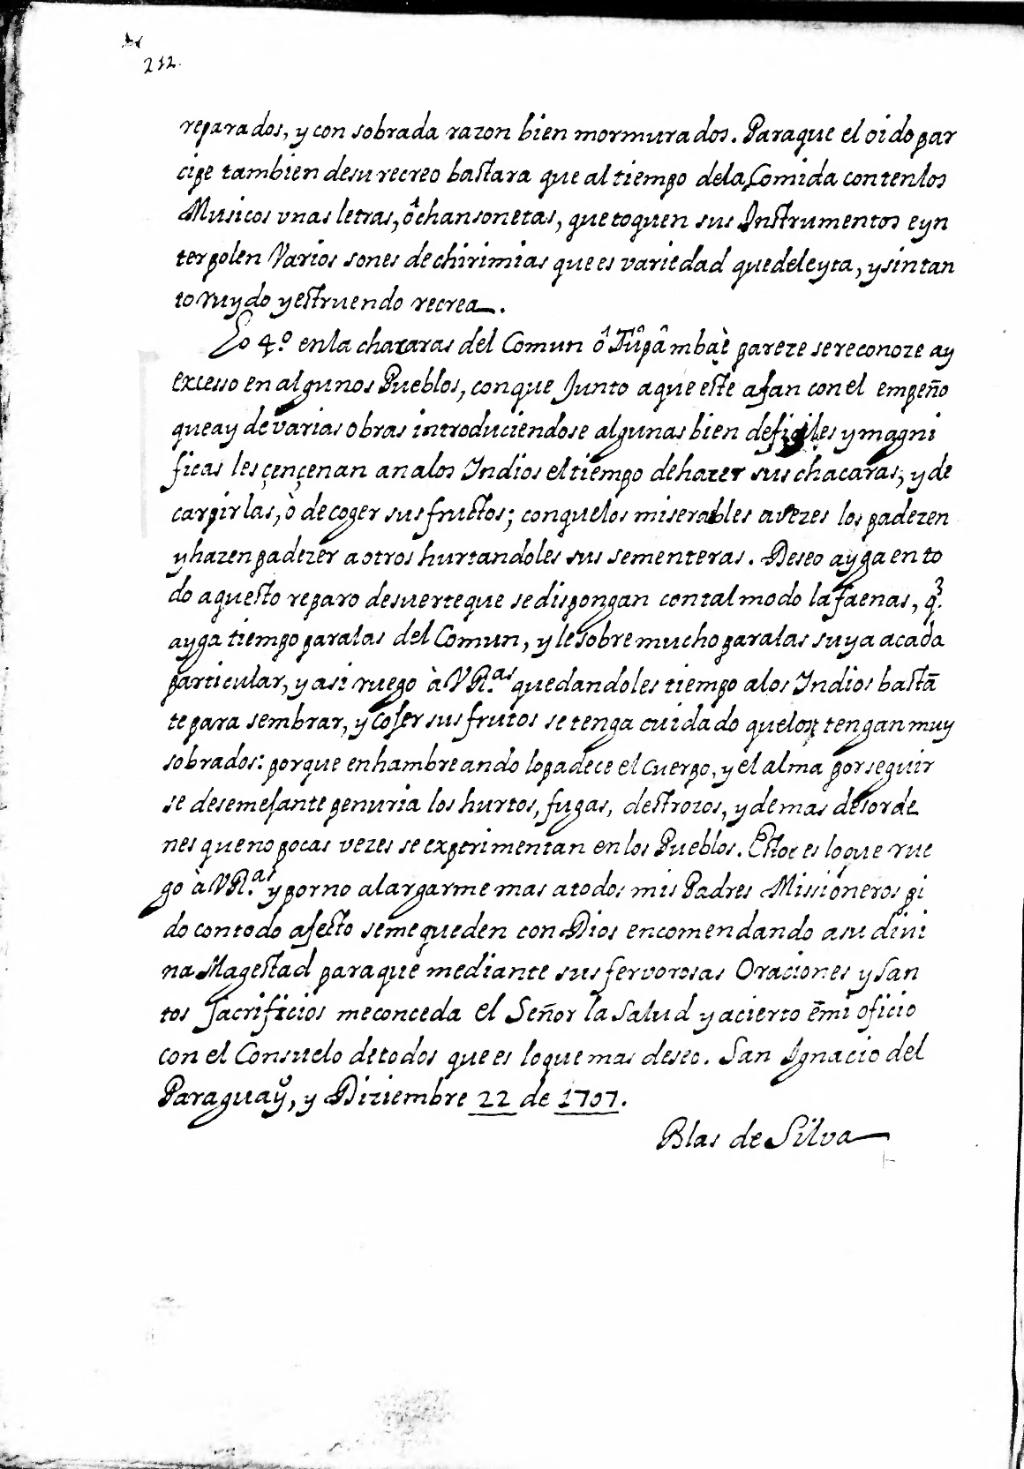 212.
reparados, y con sobrada razon bien mormurados. Paraque el oido par
cipe tambien desu recreo bastara que al tiempo dela Comida conten los
Musicos vnas letras, ô chansonetas, que toquen sus Instrumentos e yn
terpolen Varios sones de chirimias que es variedad que deleyta, y sin tan
to ruydo y estruendo recrea.
Lo 4.º en la chacaras del Comun ô Tupâ mbaè pareze se reconoze ay
excesso en algunos Pueblos, con que Junto a que este afan con el empeño
que ay de varias obras introduciendose algunas bien deficiles y magni
ficas les çençenan a nalos Indios el tiempo de hazer sus chacaras, y de
carpirlas, ò de coger sus fructos; conquelos miserables a vezes los padezen
y hazen padezer a otros hurtandoles sus sementeras. Deseo ayga en to
do aquesto reparo desuerteque se dispongan con tal modo la faenas, q.ͤ
ayga tiempo paralas del Comun, y le sobre mucho paralas suya acada
particular, y asi ruego à VR.ᵃˢ quedandoles tiempo alos Indios bastã
te para sembrar, y coser sus frutos se tenga cuidado quelos tengan muy
sobrados: porque enhambreando lo padece el cuerpo, y el alma por seguir
se de semejante penuria los hurtos, fugas, destrozos, y demas desorde
nes que no pocas vezes se experimentan en los Pueblos. Esto es lo que rue
go à VR.ᵃˢ y por no alargarme mas a todos mis Padres Missioneros pi
do con todo afecto se me queden con Dios encomendando a su divi
na Magestad paraque mediante sus fervorosas Oraciones y San
tos Sacrificios me conceda el Señor la Salud y acierto ẽ mi oficio
con el Consuelo de todos que es loque mas deseo. San Ignacio del
Paraguay, y Diziembre 22 de 1707.
Blas de Silva